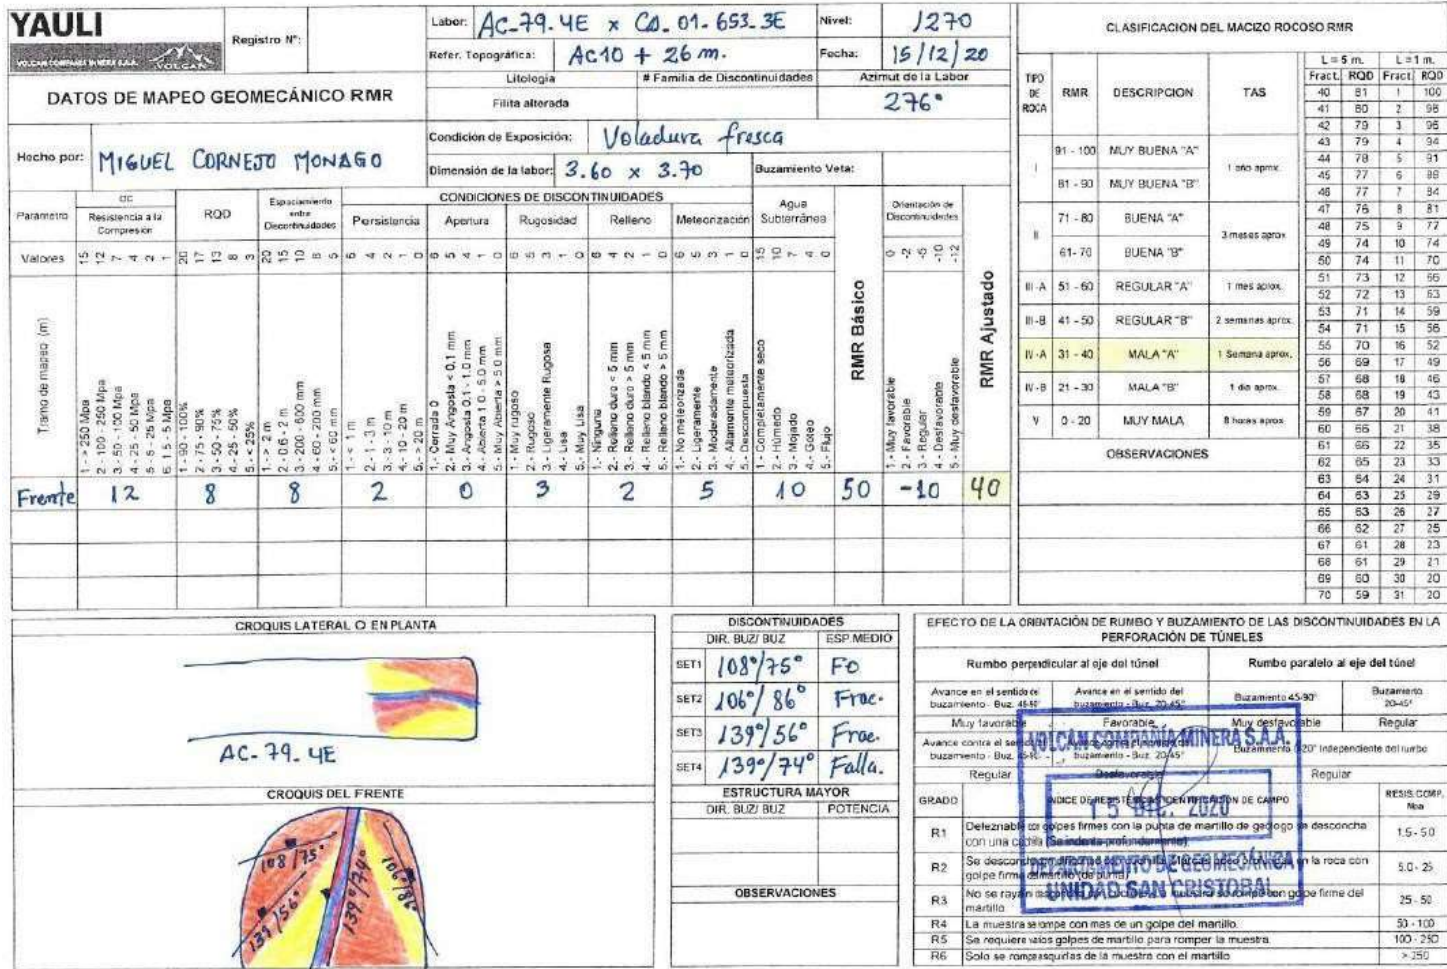 YAULI
VOLCAN COMPAÑIA MINERA S.A.A.
VOLCAN
Registro N°:
Labor: AC-79.4E x CA.01-653-3E
Nivel: 1270
Refer. Topográfica: AC10 + 26 m.
Fecha: 15/12/20
DATOS DE MAPEO GEOMECÁNICO RMR
Litología
# Familia de Discontinuidades
Azimut de la Labor
Filita alterada
276°
Hecho por: MIGUEL CORNEJO MONAGO
Condición de Exposición: Voladura fresca
Dimensión de la labor: 3.60 x 3.70
Buzamiento Veta:
CONDICIONES DE DISCONTINUIDADES
Parámetro
σc Resistencia a la Compresión
RQD
Espaciamiento entre Discontinuidades
Persistencia
Apertura
Rugosidad
Relleno
Meteorización
Agua Subterránea
Orientación de Discontinuidades
Valores
15 12 7 4 2 1
20 17 13 8 3
20 15 10 8 5
6 4 2 1 0
6 5 4 1 0
6 5 3 1 0
6 4 2 1 0
6 5 3 1 0
15 10 7 4 0
0 -2 -5 -10 -12
Tramo de mapeo (m)
1.- > 250 Mpa
2.- 100 - 250 Mpa
3.- 50 - 100 Mpa
4.- 25 - 50 Mpa
5.- 5 - 25 Mpa
6. 1.5 - 5 Mpa
1.- 90 - 100%
2.- 75 - 90%
3.- 50 - 75%
4.- 25 - 50%
5.- < 25%
1.- > 2 m
2.- 0.6 - 2 m
3.- 200 - 600 mm
4.- 60 - 200 mm
5.- < 60 mm
1.- < 1 m
2.- 1 - 3 m
3.- 3 - 10 m
4.- 10 - 20 m
5.- > 20 m
1.- Cerrada 0
2. Muy Angosta < 0.1 mm
3. Angosta 0.1 - 1.0 mm
4.- Abierta 1.0 - 5.0 mm
5.- Muy Abierta > 5.0 mm
1.- Muy rugoso
2.- Rugoso
3.- Ligeramente Rugosa
4.- Lisa
5.- Muy Lisa
1.- Ninguna
2.- Relleno duro < 5 mm
3.- Relleno duro > 5 mm
4.- Relleno blando < 5 mm
5.- Relleno blando > 5 mm
1.- No meteorizada
2.- Ligeramente
3.- Moderadamente
4.- Altamente meteorizada
5.- Descompuesta
1.- Completamente seco
2.- Húmedo
3.- Mojado
4.- Goteo
5.- Flujo
RMR Básico
1.- Muy favorable
2.- Favorable
3.- Regular
4.- Desfavorable
5.- Muy desfavorable
RMR Ajustado
Frente 12 8 8 2 0 3 2 5 10 50 -10 40
CLASIFICACION DEL MACIZO ROCOSO RMR
TIPO DE ROCA RMR DESCRIPCION TAS
I 91 - 100 MUY BUENA "A" 1 año aprox.
81 - 90 MUY BUENA "B"
II 71 - 80 BUENA "A" 3 meses aprox.
61- 70 BUENA "B"
III -A 51 - 60 REGULAR "A" 1 mes aprox.
III -B 41 - 50 REGULAR "B" 2 semanas aprox.
IV -A 31 - 40 MALA "A" 1 Semana aprox.
IV -B 21 - 30 MALA "B" 1 dia aprox.
V 0 - 20 MUY MALA 8 horas aprox.
OBSERVACIONES
L = 5 m. L = 1 m.
Fract. RQD Fract. RQD
40 81 1 100
41 80 2 98
42 79 3 96
43 79 4 94
44 78 5 91
45 77 6 88
46 77 7 84
47 76 8 81
48 75 9 77
49 74 10 74
50 74 11 70
51 73 12 66
52 72 13 63
53 71 14 59
54 71 15 56
55 70 16 52
56 69 17 49
57 68 18 46
58 68 19 43
59 67 20 41
60 66 21 38
61 66 22 35
62 65 23 33
63 64 24 31
64 63 25 29
65 63 26 27
66 62 27 25
67 61 28 23
68 61 29 21
69 60 30 20
70 59 31 20
CROQUIS LATERAL O EN PLANTA
AC-79.4E
CROQUIS DEL FRENTE
108/75°
139/56°
139°/74°
106°/86°
DISCONTINUIDADES
DIR. BUZ/ BUZ ESP.MEDIO
SET1 108°/75° Fo
SET2 106°/86° Frac.
SET3 139°/56° Frac.
SET4 139°/74° Falla.
ESTRUCTURA MAYOR
DIR. BUZ/ BUZ POTENCIA
OBSERVACIONES
EFECTO DE LA ORIENTACIÓN DE RUMBO Y BUZAMIENTO DE LAS DISCONTINUIDADES EN LA
PERFORACIÓN DE TÚNELES
Rumbo perpendicular al eje del túnel
Rumbo paralelo al eje del túnel
Avance en el sentido de buzamiento - Buz. 45-90°
Avance en el sentido del buzamiento - Buz. 20-45°
Buzamiento 45-90°
Buzamiento 20-45°
Muy favorable Favorable Muy desfavorable Regular
Avance contra el sentido buzamiento - Buz. 45-90
buzamiento - Buz. 20-45°
Buzamiento 0-20° Independiente del rumbo
Regular Desfavorable Regular
VOLCAN COMPAÑÍA MINERA S.A.A.
15 DIC. 2020
DEPARTAMENTO DE GEOMECÁNICA
UNIDAD SAN CRISTOBAL
GRADO INDICE DE RESISTENCIA IDENTIFICACION DE CAMPO RESIS. COMP. Mpa
R1 Deleznable con golpes firmes con la punta de martillo de geólogo se desconcha
con una cuchilla (Se indenta profundamente) 1.5 - 5.0
R2 Se desconcha en la roca con
golpe firme del martillo (de punta) 5.0 - 25
R3 No se raya con golpe firme del
martillo 25 - 50
R4 La muestra se rompe con mas de un golpe del martillo. 50 - 100
R5 Se requiere varios golpes de martillo para romper la muestra 100 - 250
R6 Solo se rompe esquirlas de la muestra con el martillo > 250